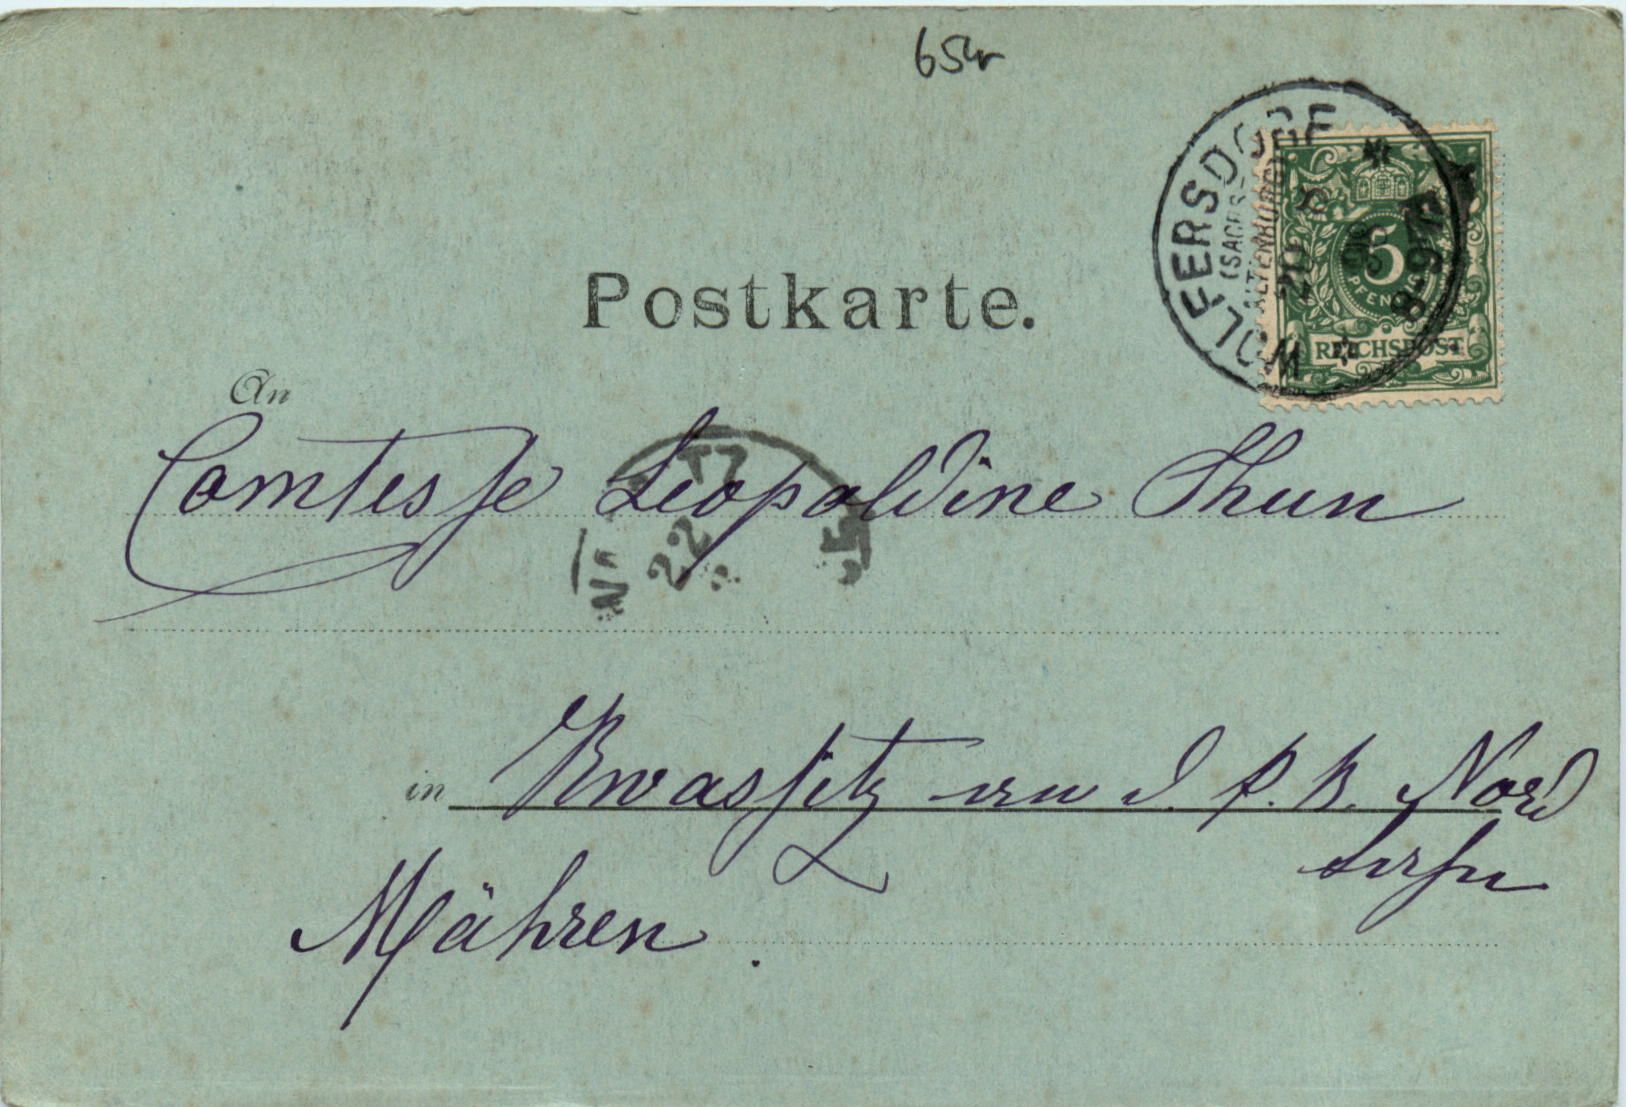 65kr
WOLFERSDORF
(SACHS.-
ALTENBURG)
20 8
98
8-9 N
5
PFENNIG
REICHSPOST
Postkarte.
An
Comtesse Leopoldine Thun
TZ
22
8
in Kwassitz an d. K. K. Nord
Mähren.